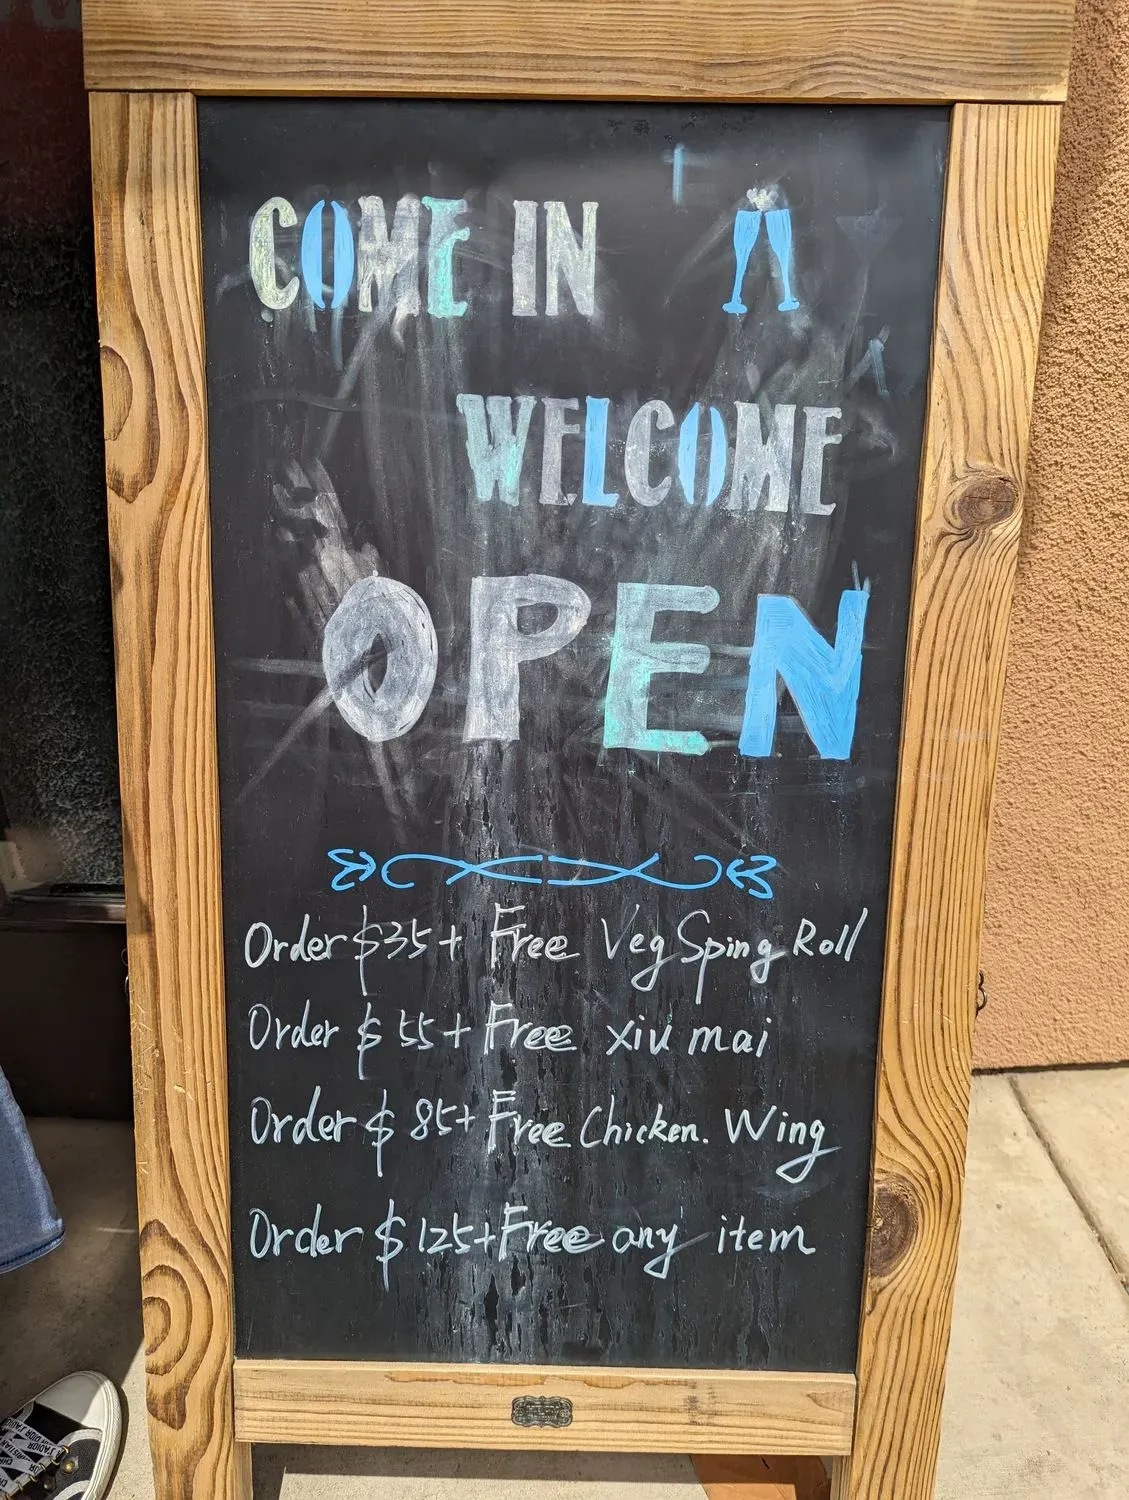 COME IN
WELCOME
OPEN
Order $35+ Free Veg Sping Roll
Order $55+ Free xiu mai
Order $85+ Free Chicken. Wing
Order $125+ Free any item